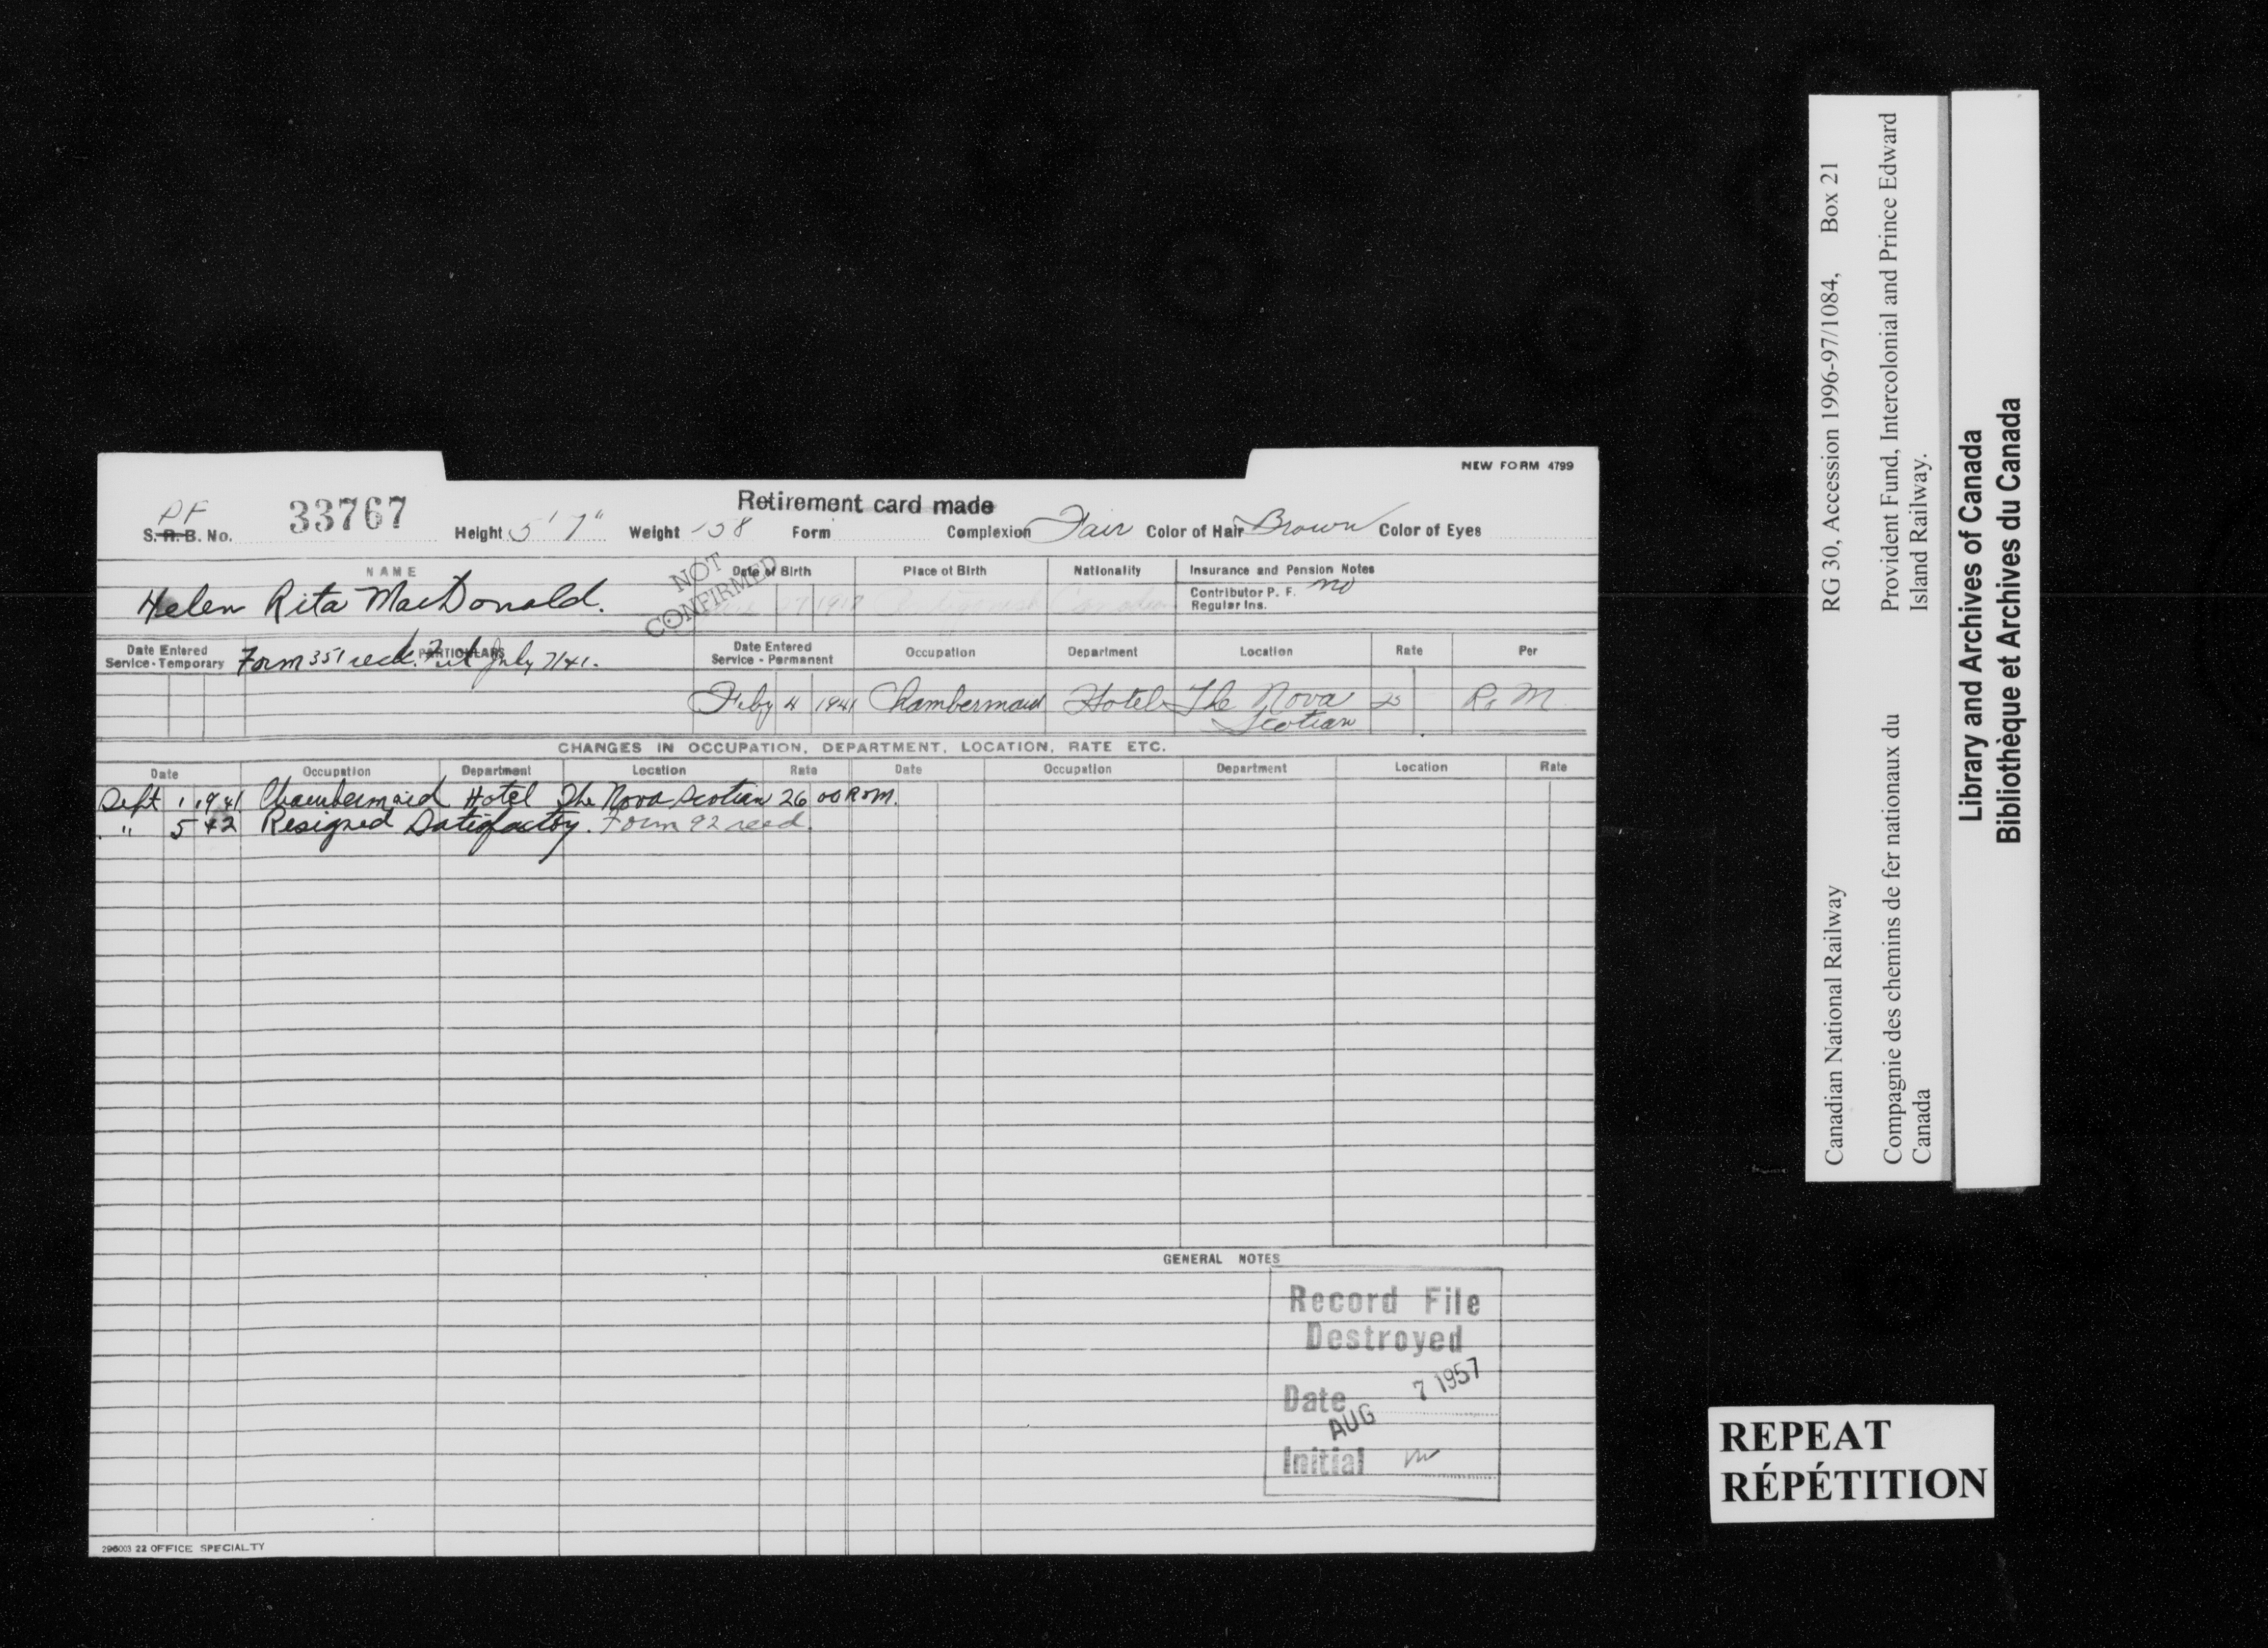 NEW FORM 4799
Retirement card made
PF
S. R. B. No. 33767 Height 5' 7" Weight 138 Form Complexion Fair Color of Hair Brown Color of Eyes
NAME Date of Birth Place of Birth Nationality Insurance and Pension Notes
NOT CONFIRMED
Helen Rita MacDonald. 1917 Antigonish Canadian Contributor P. F. no
Regular Ins.
Date Entered Service - Temporary PARTICULARS Date Entered Service - Permanent Occupation Department Location Rate Per
Form 351 recd. July 7/41.
Feby 4 1941 Chambermaid Hotel The Nova Scotian 25 R. M
CHANGES IN OCCUPATION, DEPARTMENT, LOCATION, RATE ETC.
Date Occupation Department Location Rate Date Occupation Department Location Rate
Sept 1 1941 Chambermaid Hotel The Nova Scotian 26 00 R & M.
" 5 42 Resigned Satisfactory. Form 92 recd.
GENERAL NOTES
Record File
Destroyed
Date AUG 7 1957
Initial
296003 22 OFFICE SPECIALTY
Canadian National Railway RG 30, Accession 1996-97/1084, Box 21
Compagnie des chemins de fer nationaux du Canada
Provident Fund, Intercolonial and Prince Edward Island Railway.
Library and Archives of Canada
Bibliothèque et Archives du Canada
REPEAT
RÉPÉTITION